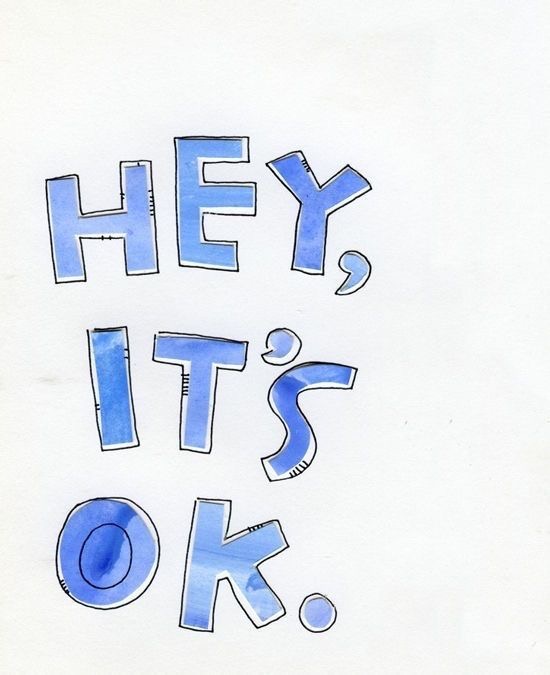 HEY,
IT'S
OK.